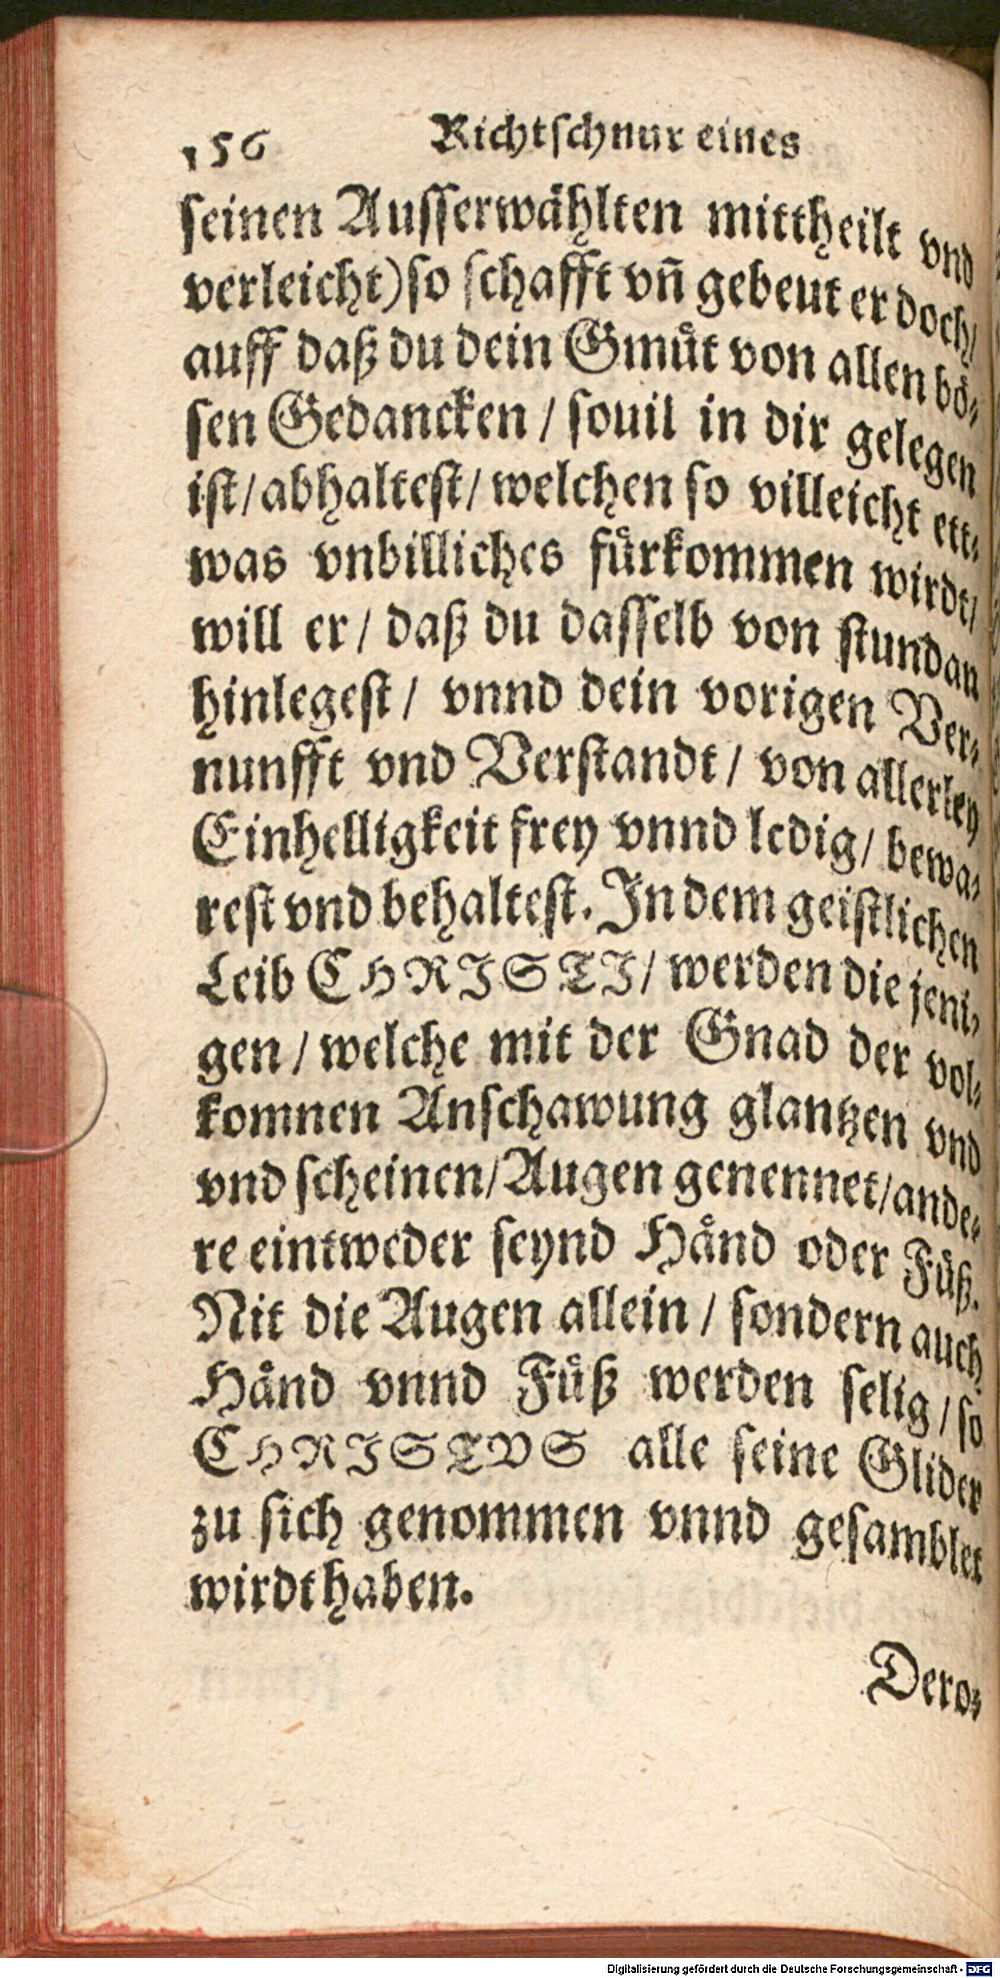 156 Richtschnur eines
seinen Ausserwählten mittheilt vnd
verleicht) so schafft vñ gebeut er doch/
auff daß du dein Gmüt von allen bö-
sen Gedancken / souil in dir gelegen
ist/ abhaltest/ welchen so villeicht ett-
was vnbilliches fürkommen wirdt/
will er / daß du dasselb von stundan
hinlegest / vnnd dein vorigen Ver-
nunfft vnd Verstandt / von allerley
Einhelligkeit frey vnnd ledig / bewa-
rest vnd behaltest. In dem geistlichen
Leib CHRISTI / werden die jeni-
gen / welche mit der Gnad der vol-
komnen Anschawung glantzen vnd
vnd scheinen/ Augen genennet/ ande-
re eintweder seynd Händ oder Füß.
Nit die Augen allein / sondern auch
Händ vnnd Füß werden selig / so
CHRISTVS alle seine Glider
zu sich genommen vnnd gesamblet
wirdt haben.
Dero-
Digitalisierung gefördert durch die Deutsche Forschungsgemeinschaft - DFG